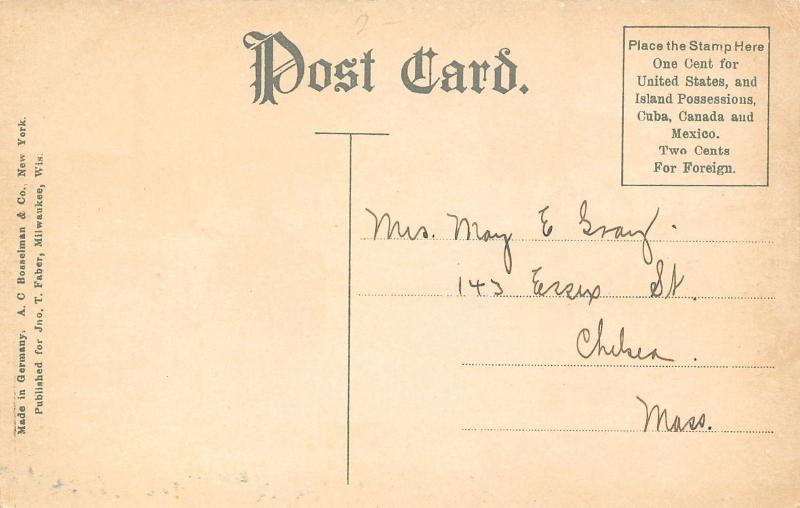 Post Card.
Place the Stamp Here
One Cent for
United States, and
Island Possessions,
Cuba, Canada and
Mexico.
Two Cents
For Foreign.
Mrs. May E Gray.
143 Essex St.
Chelsea.
Mass.
Made in Germany. A. C Bosselman & Co., New York.
Published for Jno. T. Faber, Milwaukee, Wis.